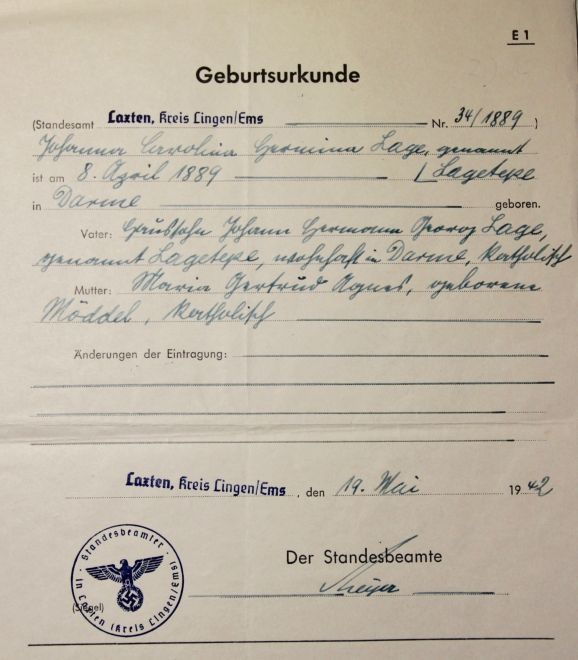 E 1
Geburtsurkunde
(Standesamt Laxten, Kreis Lingen/Ems Nr. 34/1889)
Johanna Carolina Hermina Lage, genannt
ist am 8. April 1889 Lagetepe
in Darme geboren.
Vater: Johann Hermann Georg Lage,
genannt Lagetepe, wohnhaft in Darme, katholisch
Mutter: Maria Gertrud Agnes, geborene
Möddel, katholisch
Änderungen der Eintragung:
Laxten, Kreis Lingen/Ems, den 19. Mai 1942
Der Standesbeamte
Standesbeamter
in Laxten (Kreis Lingen/Ems)
(Siegel)